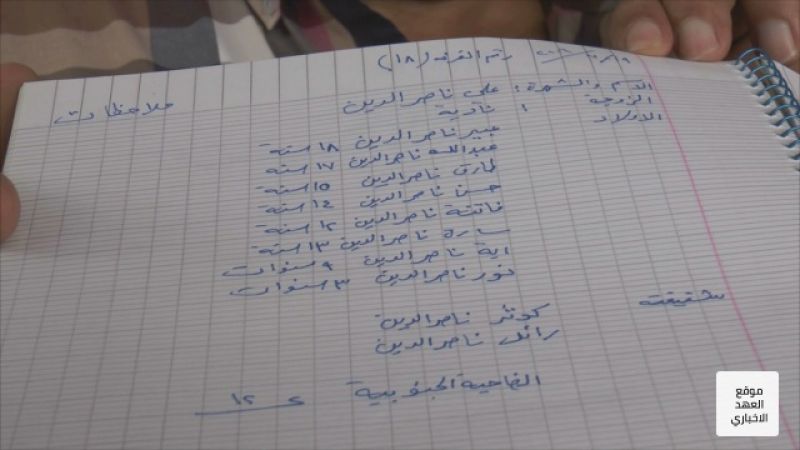 رقم الغرفة (١٨)
الاسم والشهرة: علي ناصر الدين ملاحظات
الزوجة: نادية
الاولاد
عبير ناصر الدين ١٨ سنة
عبدالله ناصر الدين ١٧ سنة
طارق ناصر الدين ١٥ سنة
حسن ناصر الدين ١٤ سنة
فاتنة ناصر الدين ١٢ سنة
سارة ناصر الدين ١٣ سنة
اية ناصر الدين ٩ سنوات
نور ناصر الدين ٣ سنوات
شقيقته كوثر ناصر الدين
ناصر الدين
الضاحية الجنوبية ع ١٢
موقع
العهد
الاخباري